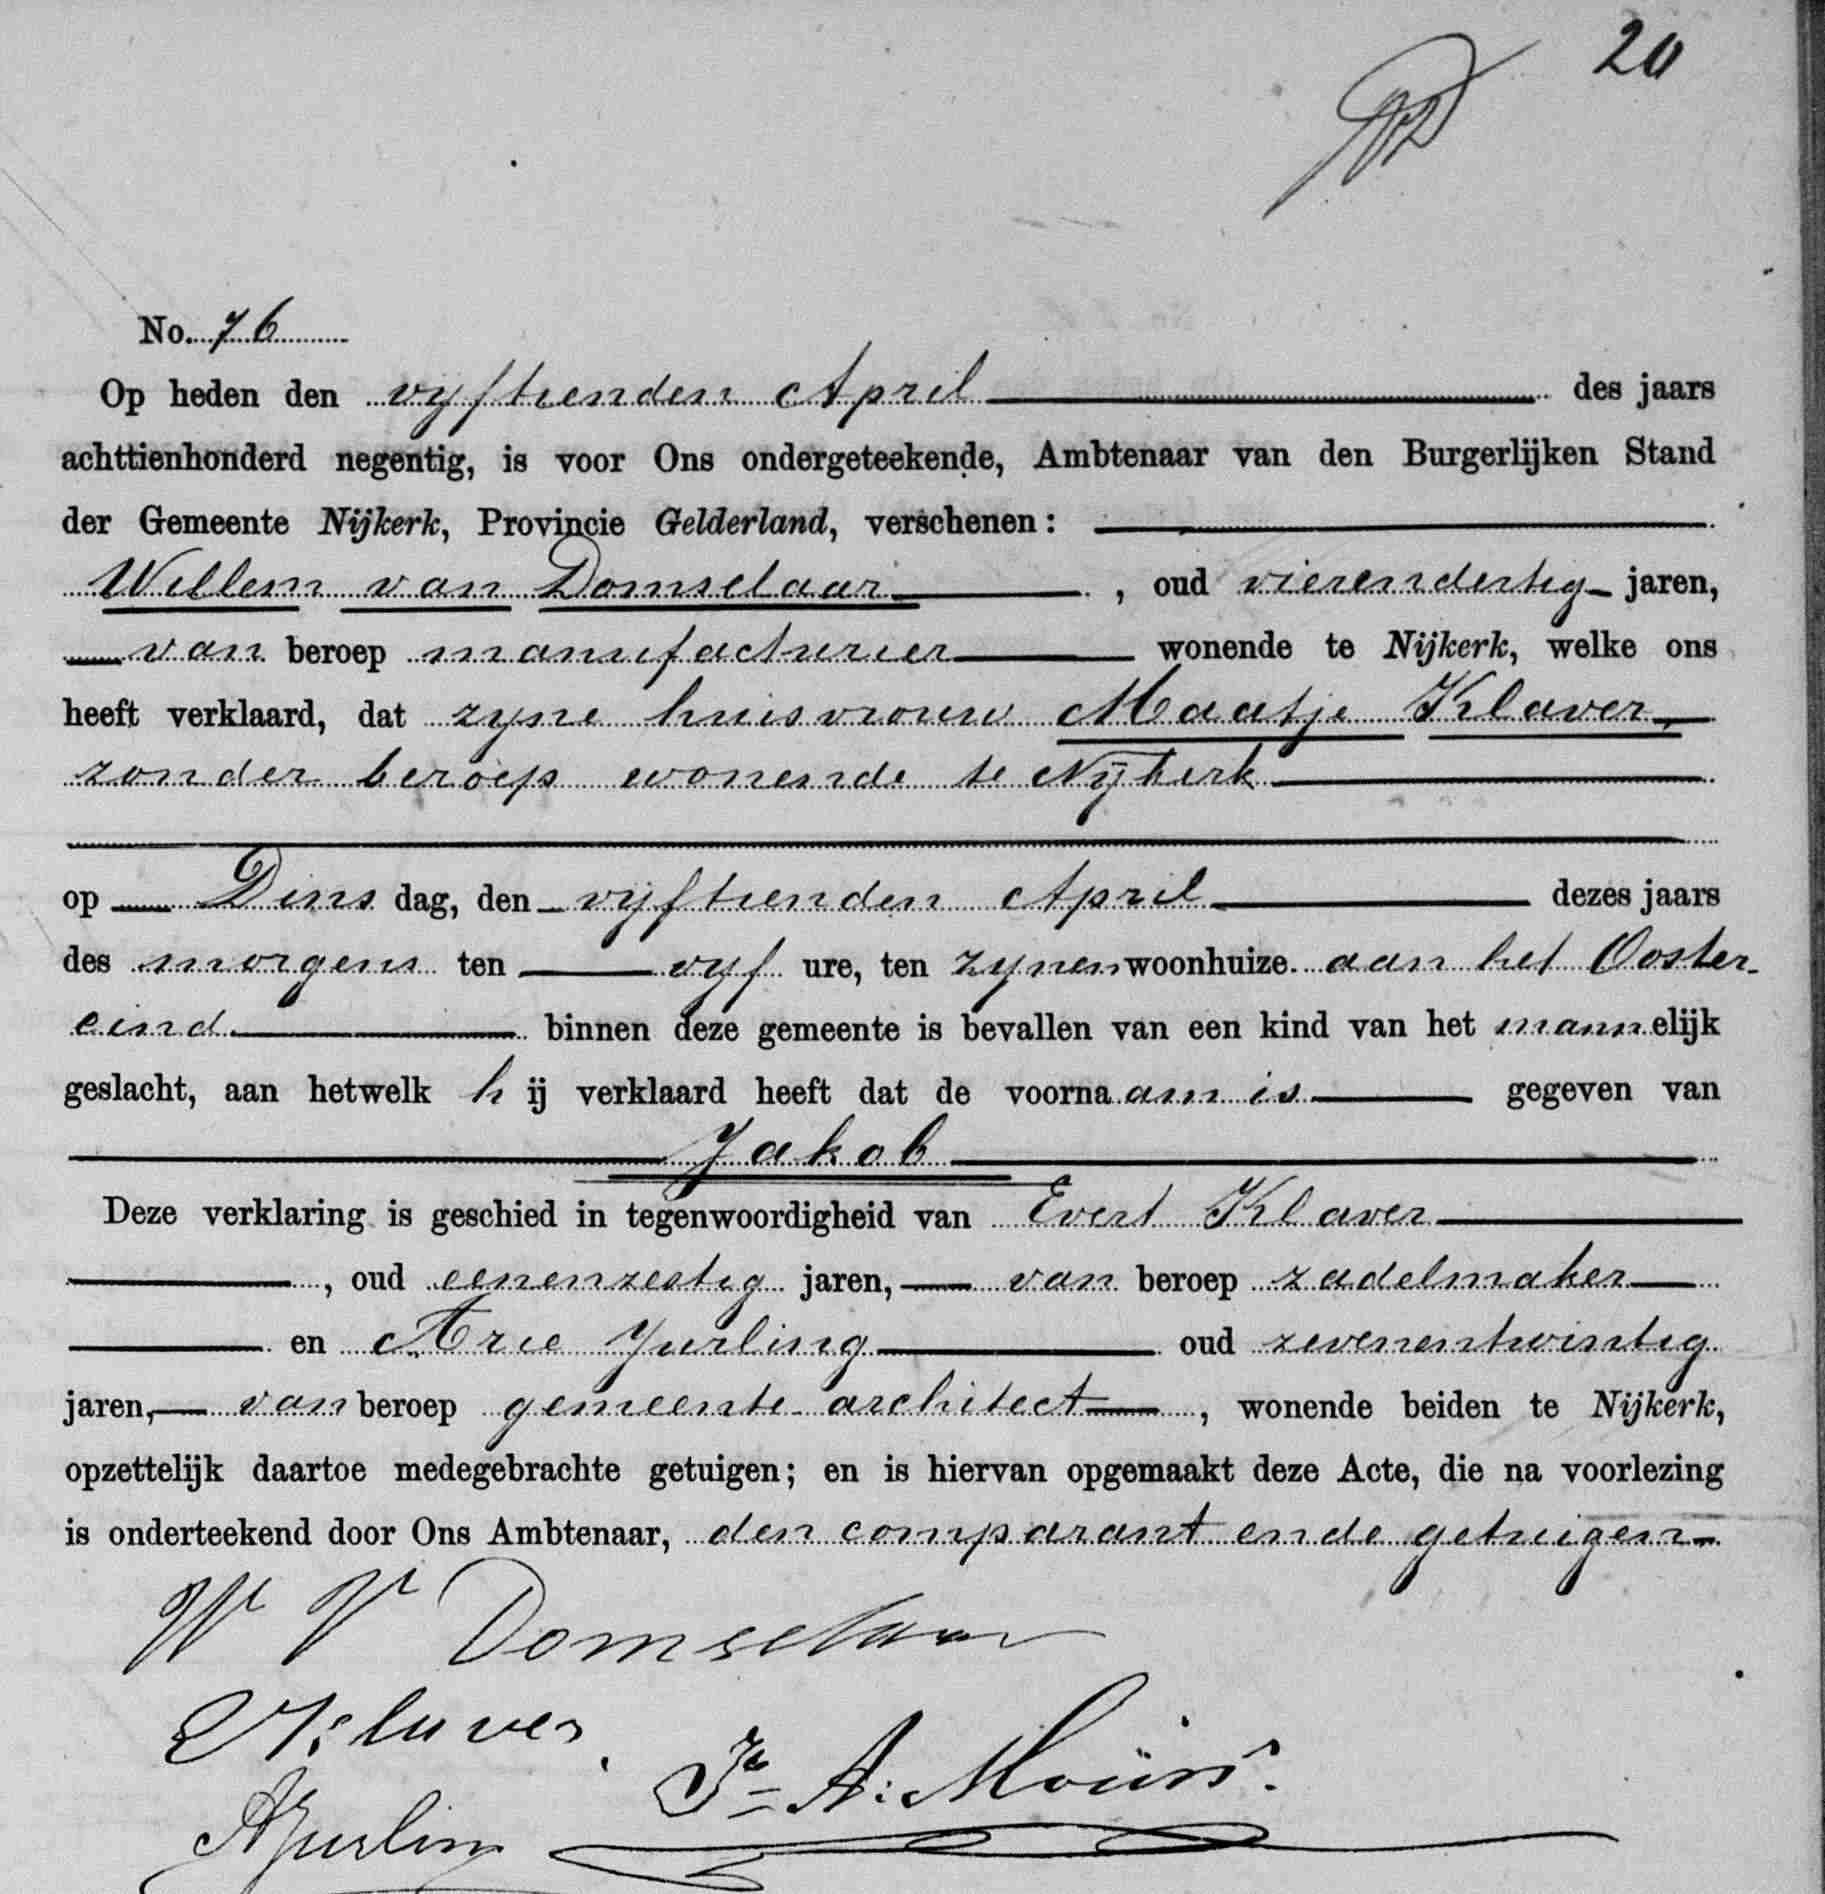 20
No. 76
Op heden den vyftienden April des jaars
achttienhonderd negentig, is voor Ons ondergeteekende, Ambtenaar van den Burgerlijken Stand
der Gemeente Nijkerk, Provincie Gelderland, verschenen:
Willem van Domselaar, oud vierendertig jaren,
van beroep manufacturier wonende te Nijkerk, welke ons
heeft verklaard, dat zyne huisvrouw Maatje Klaver,
zonder beroep wonende te Nijkerk
op Dinsdag, den vyftienden April dezes jaars
des morgens ten vyf ure, ten zynen woonhuize aan het Ooster-
eind binnen deze gemeente is bevallen van een kind van het mannelijk
geslacht, aan hetwelk hij verklaard heeft dat de voornaam is gegeven van
Jakob
Deze verklaring is geschied in tegenwoordigheid van Evert Klaver
, oud eenenzestig jaren, van beroep zadelmaker
en Arie Jurling oud zevenentwintig
jaren, van beroep gemeente architect, wonende beiden te Nijkerk,
opzettelijk daartoe medegebrachte getuigen; en is hiervan opgemaakt deze Acte, die na voorlezing
is onderteekend door Ons Ambtenaar, den comparant en de getuigen
W V Domselaar
E Klaver.
A Jurling